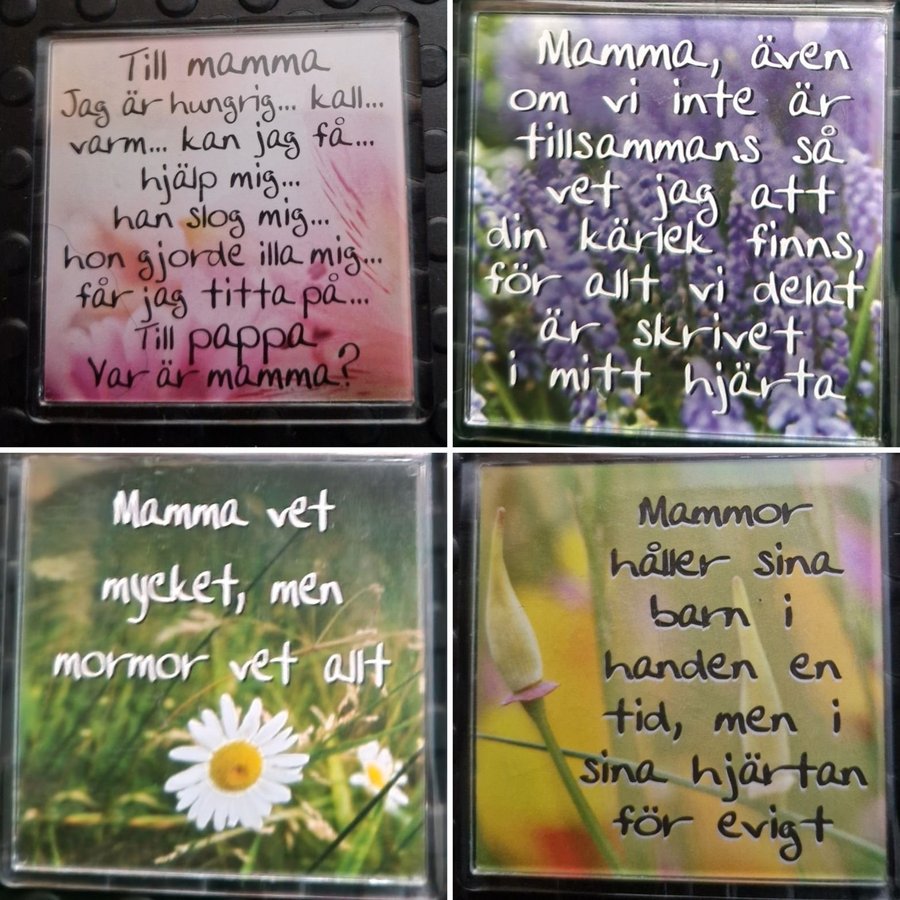 Till mamma
Jag är hungrig... kall...
varm... kan jag få...
hjälp mig...
han slog mig...
hon gjorde illa mig...
får jag titta på...
Till pappa
Var är mamma?
Mamma, även
om vi inte är
tillsammans så
vet jag att
din kärlek finns,
för allt vi delat
är skrivet
i mitt hjärta
Mamma vet
mycket, men
mormor vet allt
Mammor
håller sina
barn i
handen en
tid, men i
sina hjärtan
för evigt